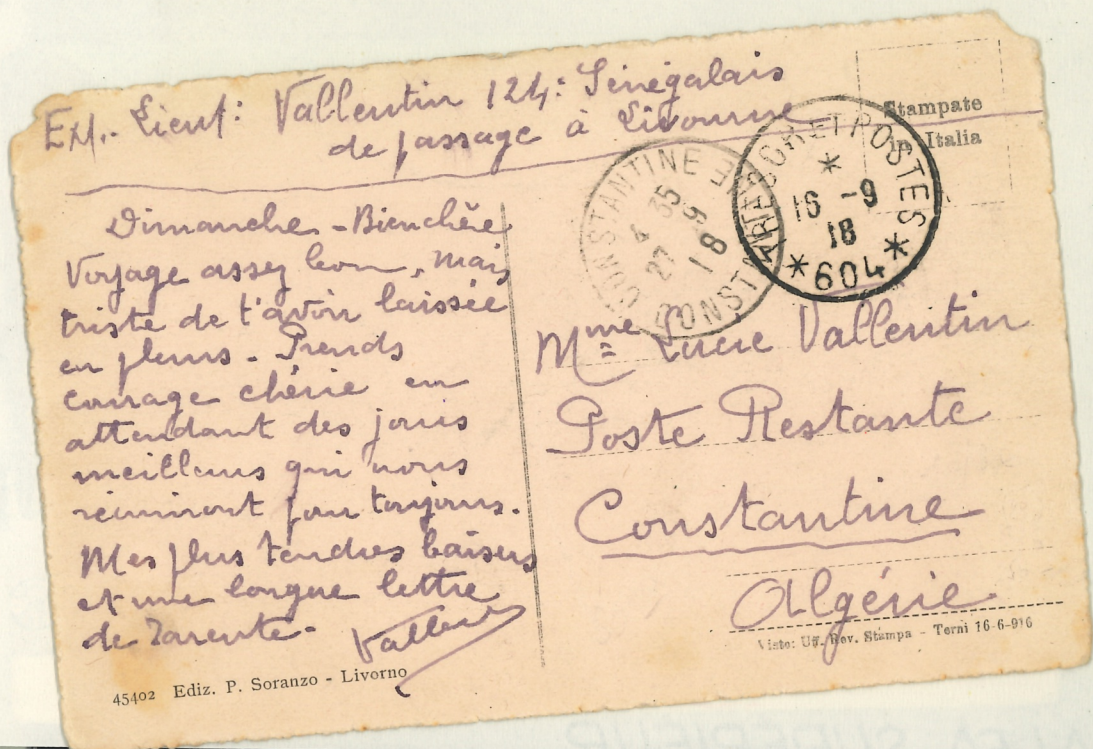 Ex. Lieut: Vallentin 124: Sénégalais
de passage à Livourne
Stampate
in Italia
CONSTANTINE
4 35
27 -9
18
CONSTANTINE
TRESOR ET POSTES
*
16 -9
18
* 604 *
Dimanche - Bien chère
Voyage assez bon, mais
triste de t'avoir laissée
en pleurs - Prends
courage chérie en
attendant des jours
meilleurs qui nous
réuniront pour toujours.
Mes plus tendres baisers
et une longue lettre
de Tarente -
Mme Lucie Vallentin
Poste Restante
Constantine
Algérie
Visto: Uff. Rev. Stampa - Terni 16-6-916
45402 Ediz. P. Soranzo - Livorno